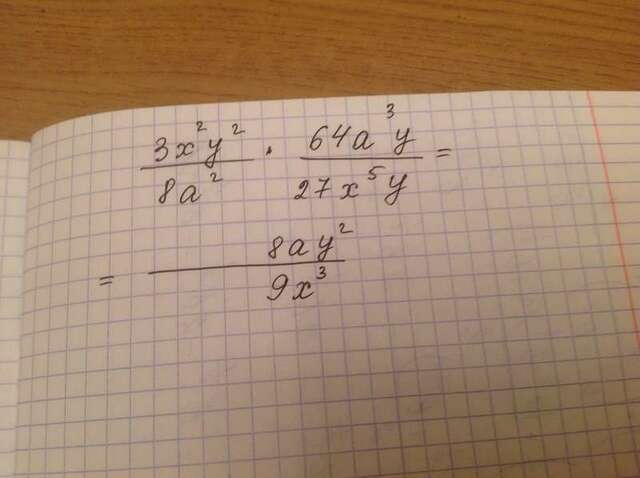 3x²y²/8a² · 64a³y/27x⁵y =
= 8ay²/9x³